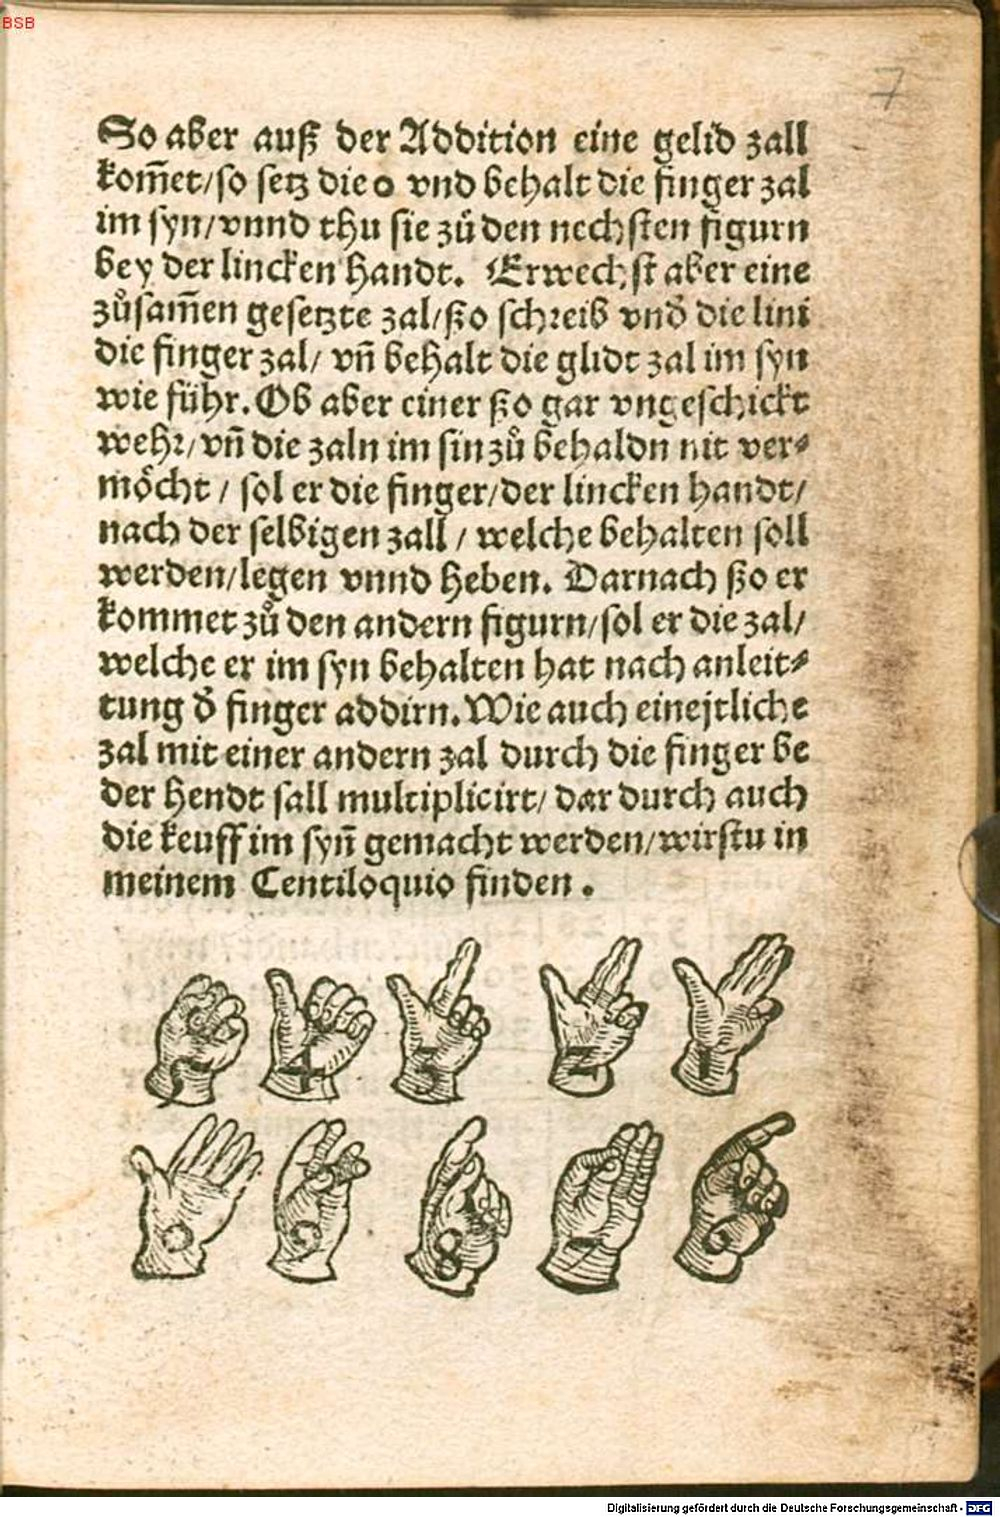 BSB
7
So aber auß der Addition eine gelid zall
kom̃et/so setz die o vnd behalt die finger zal
im syn/vnnd thu sie zů den nechsten figurn
bey der lincken handt. Erwechst aber eine
zůsam̃en gesetzte zal/ßo schreib vnd̕ die lini
die finger zal/ vñ behalt die glidt zal im syn
wie führ. Ob aber einer ßo gar vngeschickt
wehr/vñ die zaln im sin zů behaldn nit ver⸗
möcht / sol er die finger/der lincken handt/
nach der selbigen zall / welche behalten soll
werden/legen vnnd heben. Darnach ßo er
kommet zů den andern figurn/sol er die zal/
welche er im syn behalten hat nach anleit⸗
tung d̕ finger addirn. Wie auch einejtliche
zal mit einer andern zal durch die finger be
der hendt sall multiplicirt/ dar durch auch
die keuff im syñ gemacht werden/wirstu in
meinem Centiloquio finden.
5 4 3 2 1
0 9 8 7 6
Digitalisierung gefördert durch die Deutsche Forschungsgemeinschaft - DFG